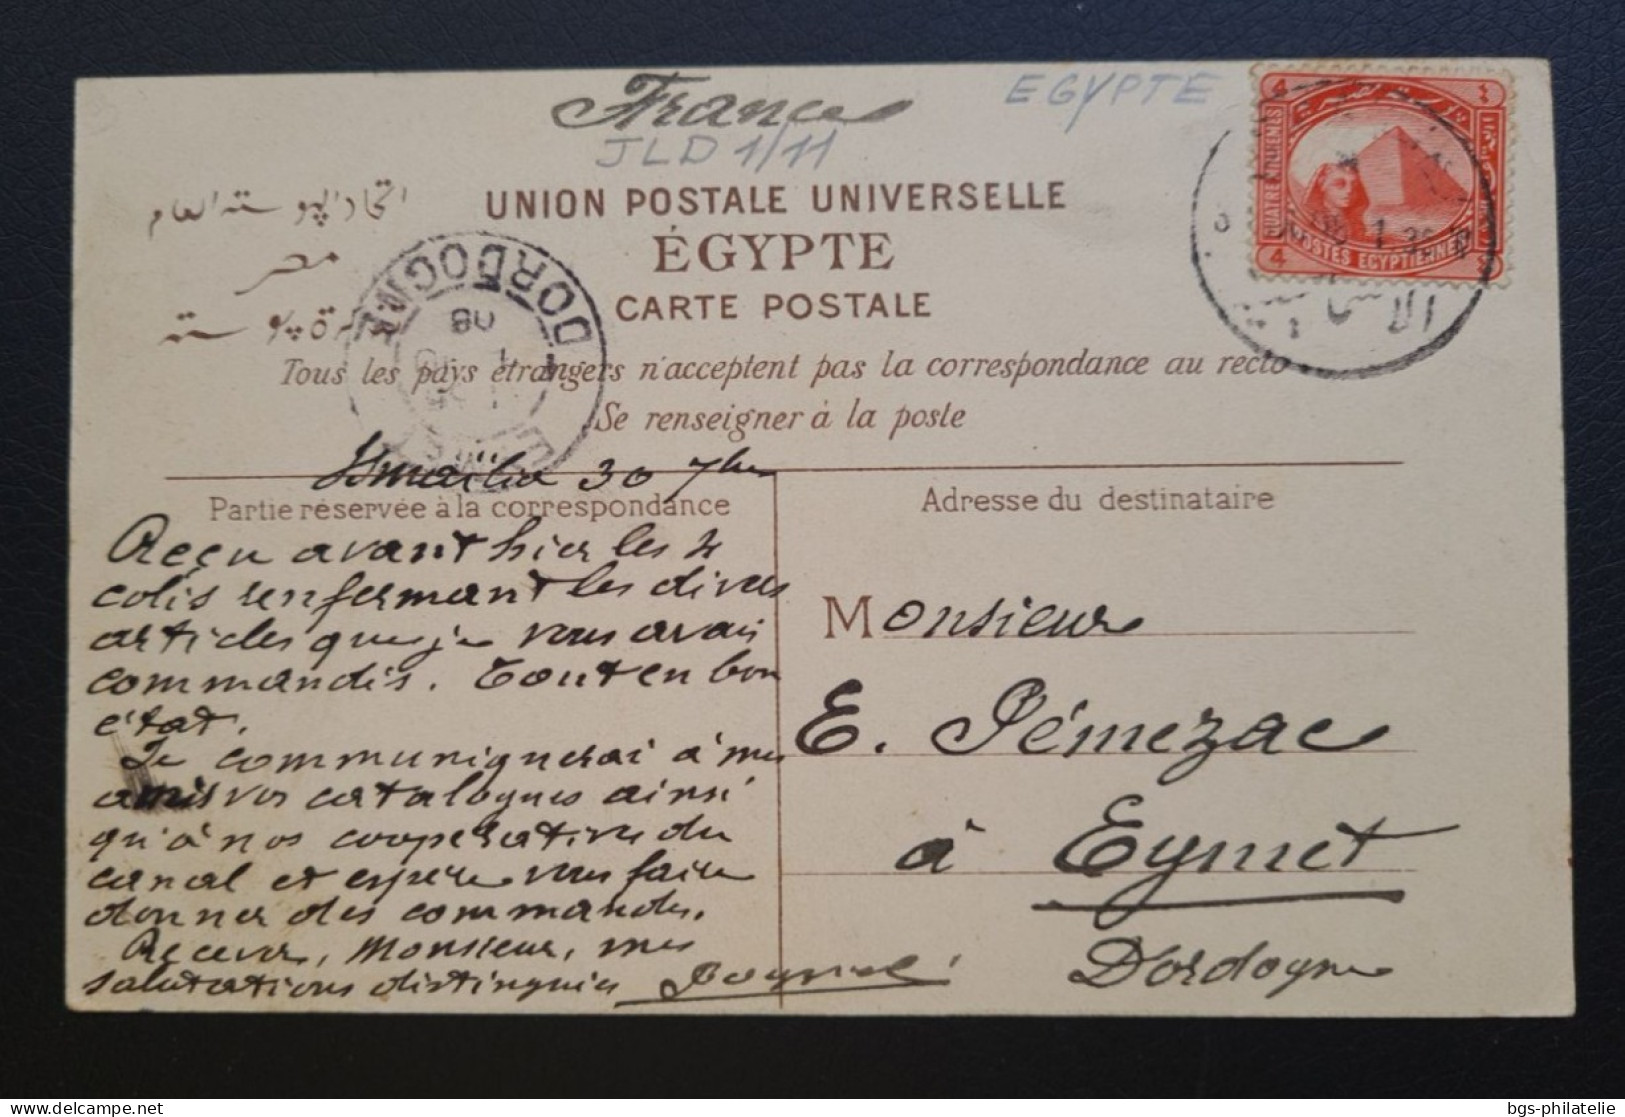 France
EGYPTE
JLD 1/11
UNION POSTALE UNIVERSELLE
ÉGYPTE
CARTE POSTALE
اتحاد البوسته العام
مصر
Tous les pays étrangers n'acceptent pas la correspondance au recto
Se renseigner à la poste
4
4
4
QUATRE MILLIEMES
POSTES EGYPTIENNES
DORDOGNE
08
Ismaïlia 30 7bre
Partie réservée à la correspondance
Reçu avant hier les 4
colis renfermant les divers
articles que je vous avais
commandés. Tout en bon
état.
Je communiquerai à mes
amis vos catalogues ainsi
qu'à nos coopérative du
canal et espère vous faire
donner des commandes.
Recevez, Monsieur, mes
salutations distinguées
Adresse du destinataire
Monsieur
E. Pémezac
à Eymet
Dordogne
bgs-philatelie